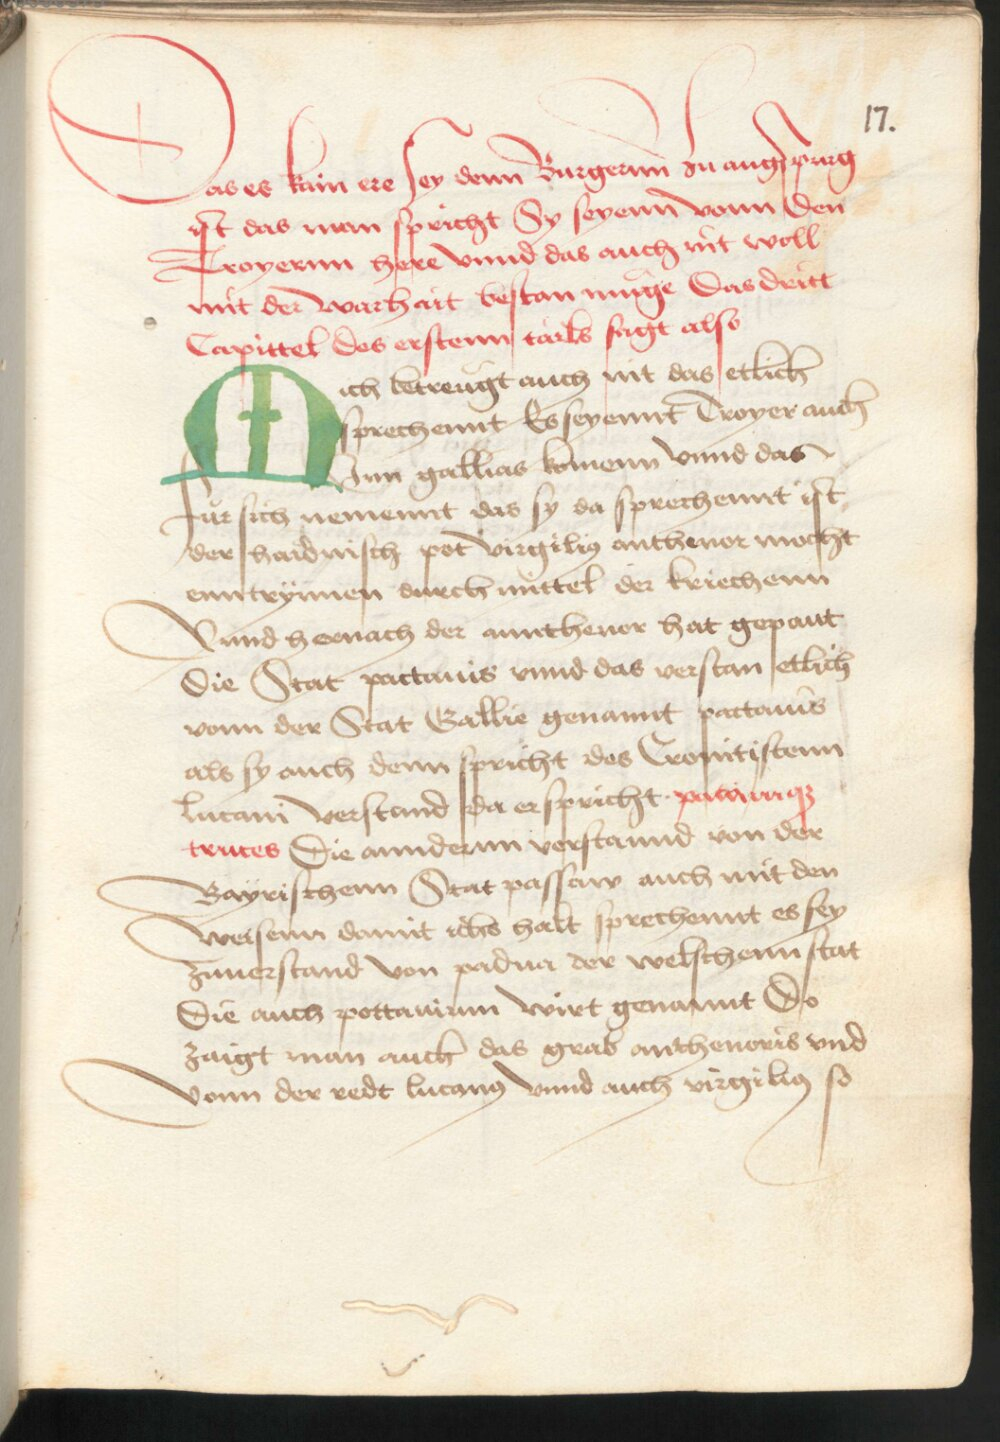 17.
Das es kain ere sey denn Burgernn zu augspurg
ist das man spricht Sy seyenn vonn den
Troyernn here vnnd das auch nit woll
mit der warhait bestan muge Das dritt
Capittel des erstenn tails sagt also
Mich betreugt auch nit das etlich
sprechennt Es seyennt Troyer auch
Inn gallias komenn vnnd das
fur sich nemennt das sy da sprechennt ist
der haidnisch pot virgilius anthenor mocht
enntrynnen durch mittel der kriechenn
Vnnd hernach der annthenor hat gepaut
Die Stat pattauis vnnd das verstan etlich
vonn der Stat Gallie genannt pattauis
als sy auch denn spricht des Cronitistenn
lucani verstand da er spricht patauiuqz
truces Die anndernn verstannd von der
Bayrischenn Stat passaw auch mit den
weisenn damit ichs halt sprechennt es sey
zuuerstand von padua der welschenn stat
Die auch pottauium wirt genannt Do
zaigt man auch das grab anthenoris vnd
Vonn der redt lucanus vnnd auch virgilius so